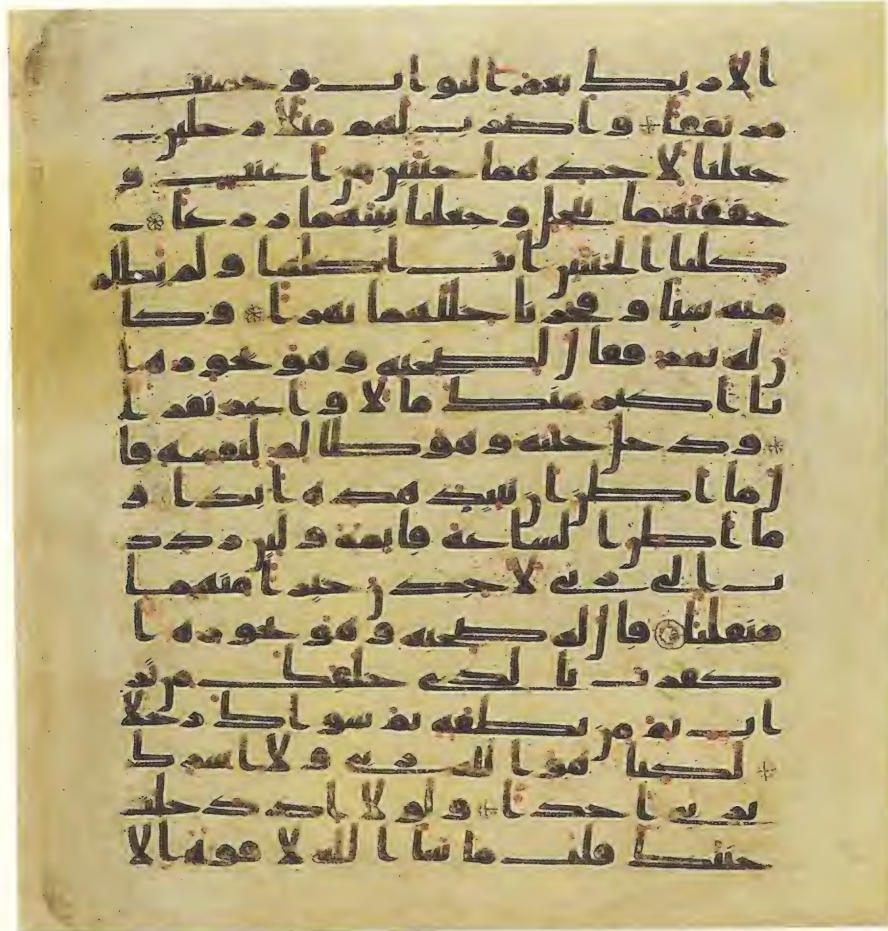 الارىك نعم الثواب وحسنت
مرتفقا واضرب لهم مثلا رجلين
جعلنا لاحدهما جنتين من اعنب و
حففنهما بنخل وجعلنا بينهما زرعا
كلتا الجنتين اتت اكلها ولم تظلم
منه شيا وفجرنا خللهما نهرا وكا
ن له ثمر فقال لصحبه وهو يحوره ا
نا اكثر منك مالا واعز نفرا
ودخل جنته وهو ظالم لنفسه قا
ل ما اظن ان تبيد هذه ابدا و
ما اظن الساعة قايمة ولين ردد
ت الى ربى لاجدن خيرا منهما
منقلبا قال له صحبه وهو يحوره ا
كفرت بالذى خلقك من تر
اب ثم من نطفة ثم سوىك رجلا
لكنا هو الله ربى ولا اشرك
بربى احدا ولولا اذ دخلت
جنتك قلت ما شا الله لا قوة الا